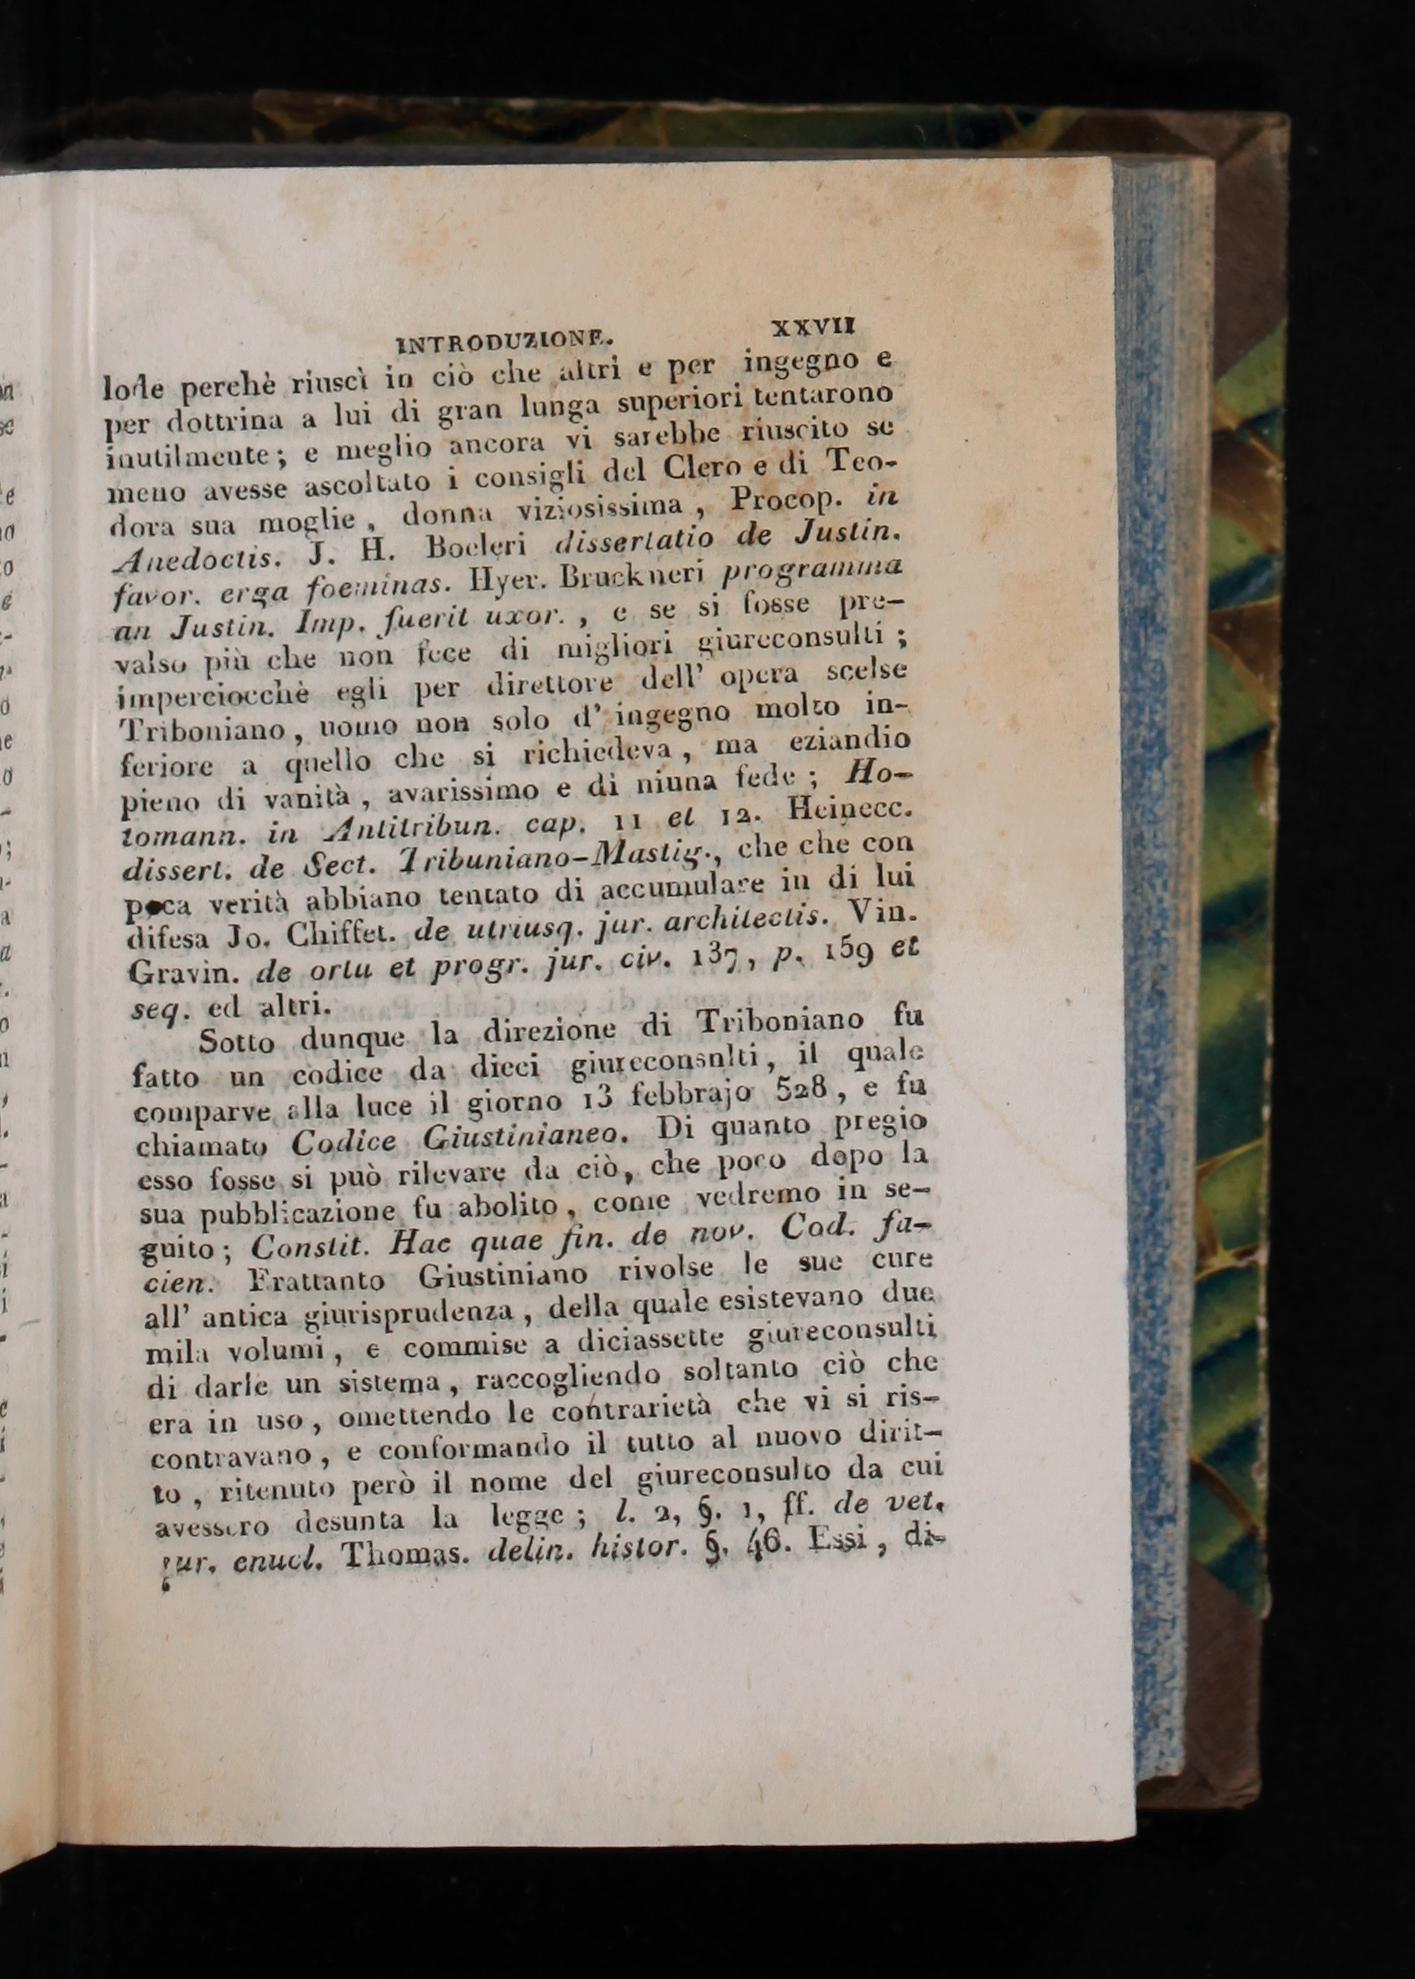 INTRODUZIONE. XXVII
lode perchè riuscì in ciò che altri e per ingegno e
per dottrina a lui di gran lunga superiori tentarono
inutilmente; e meglio ancora vi sarebbe riuscito se
meno avesse ascoltato i consigli del Clero e di Teo-
dora sua moglie, donna viziosissima, Procop. in
Anedoctis. J. H. Boeleri dissertatio de Justin.
favor. erga foeminas. Hyer. Bruckneri programma
an Justin. Imp. fuerit uxor., e se si fosse pre-
valso più che non fece di migliori giureconsulti;
imperciocchè egli per direttore dell' opera scelse
Triboniano, uomo non solo d' ingegno molto in-
feriore a quello che si richiedeva, ma eziandio
pieno di vanità, avarissimo e di niuna fede; Ho-
tomann. in Antitribun. cap. 11 et 12. Heinecc.
dissert. de Sect. Tribuniano-Mastig., che che con
poca verità abbiano tentato di accumulare in di lui
difesa Jo. Chiffet. de utriusq. jur. architectis. Vin.
Gravin. de ortu et progr. jur. civ. 137, p. 159 et
seq. ed altri.
Sotto dunque la direzione di Triboniano fu
fatto un codice da dieci giureconsulti, il quale
comparve alla luce il giorno 13 febbrajo 528, e fu
chiamato Codice Giustinianeo. Di quanto pregio
esso fosse si può rilevare da ciò, che poco dopo la
sua pubblicazione fu abolito, come vedremo in se-
guito; Constit. Hac quae fin. de nov. Cod. fa-
cien. Frattanto Giustiniano rivolse le sue cure
all' antica giurisprudenza, della quale esistevano due
mila volumi, e commise a diciassette giureconsulti
di darle un sistema, raccogliendo soltanto ciò che
era in uso, omettendo le contrarietà che vi si ris-
contravano, e conformando il tutto al nuovo dirit-
to, ritenuto però il nome del giureconsulto da cui
avessero desunta la legge; l. 2, §. 1, ff. de vet.
jur. enucl. Thomas. delin. histor. §. 46. Essi, di-